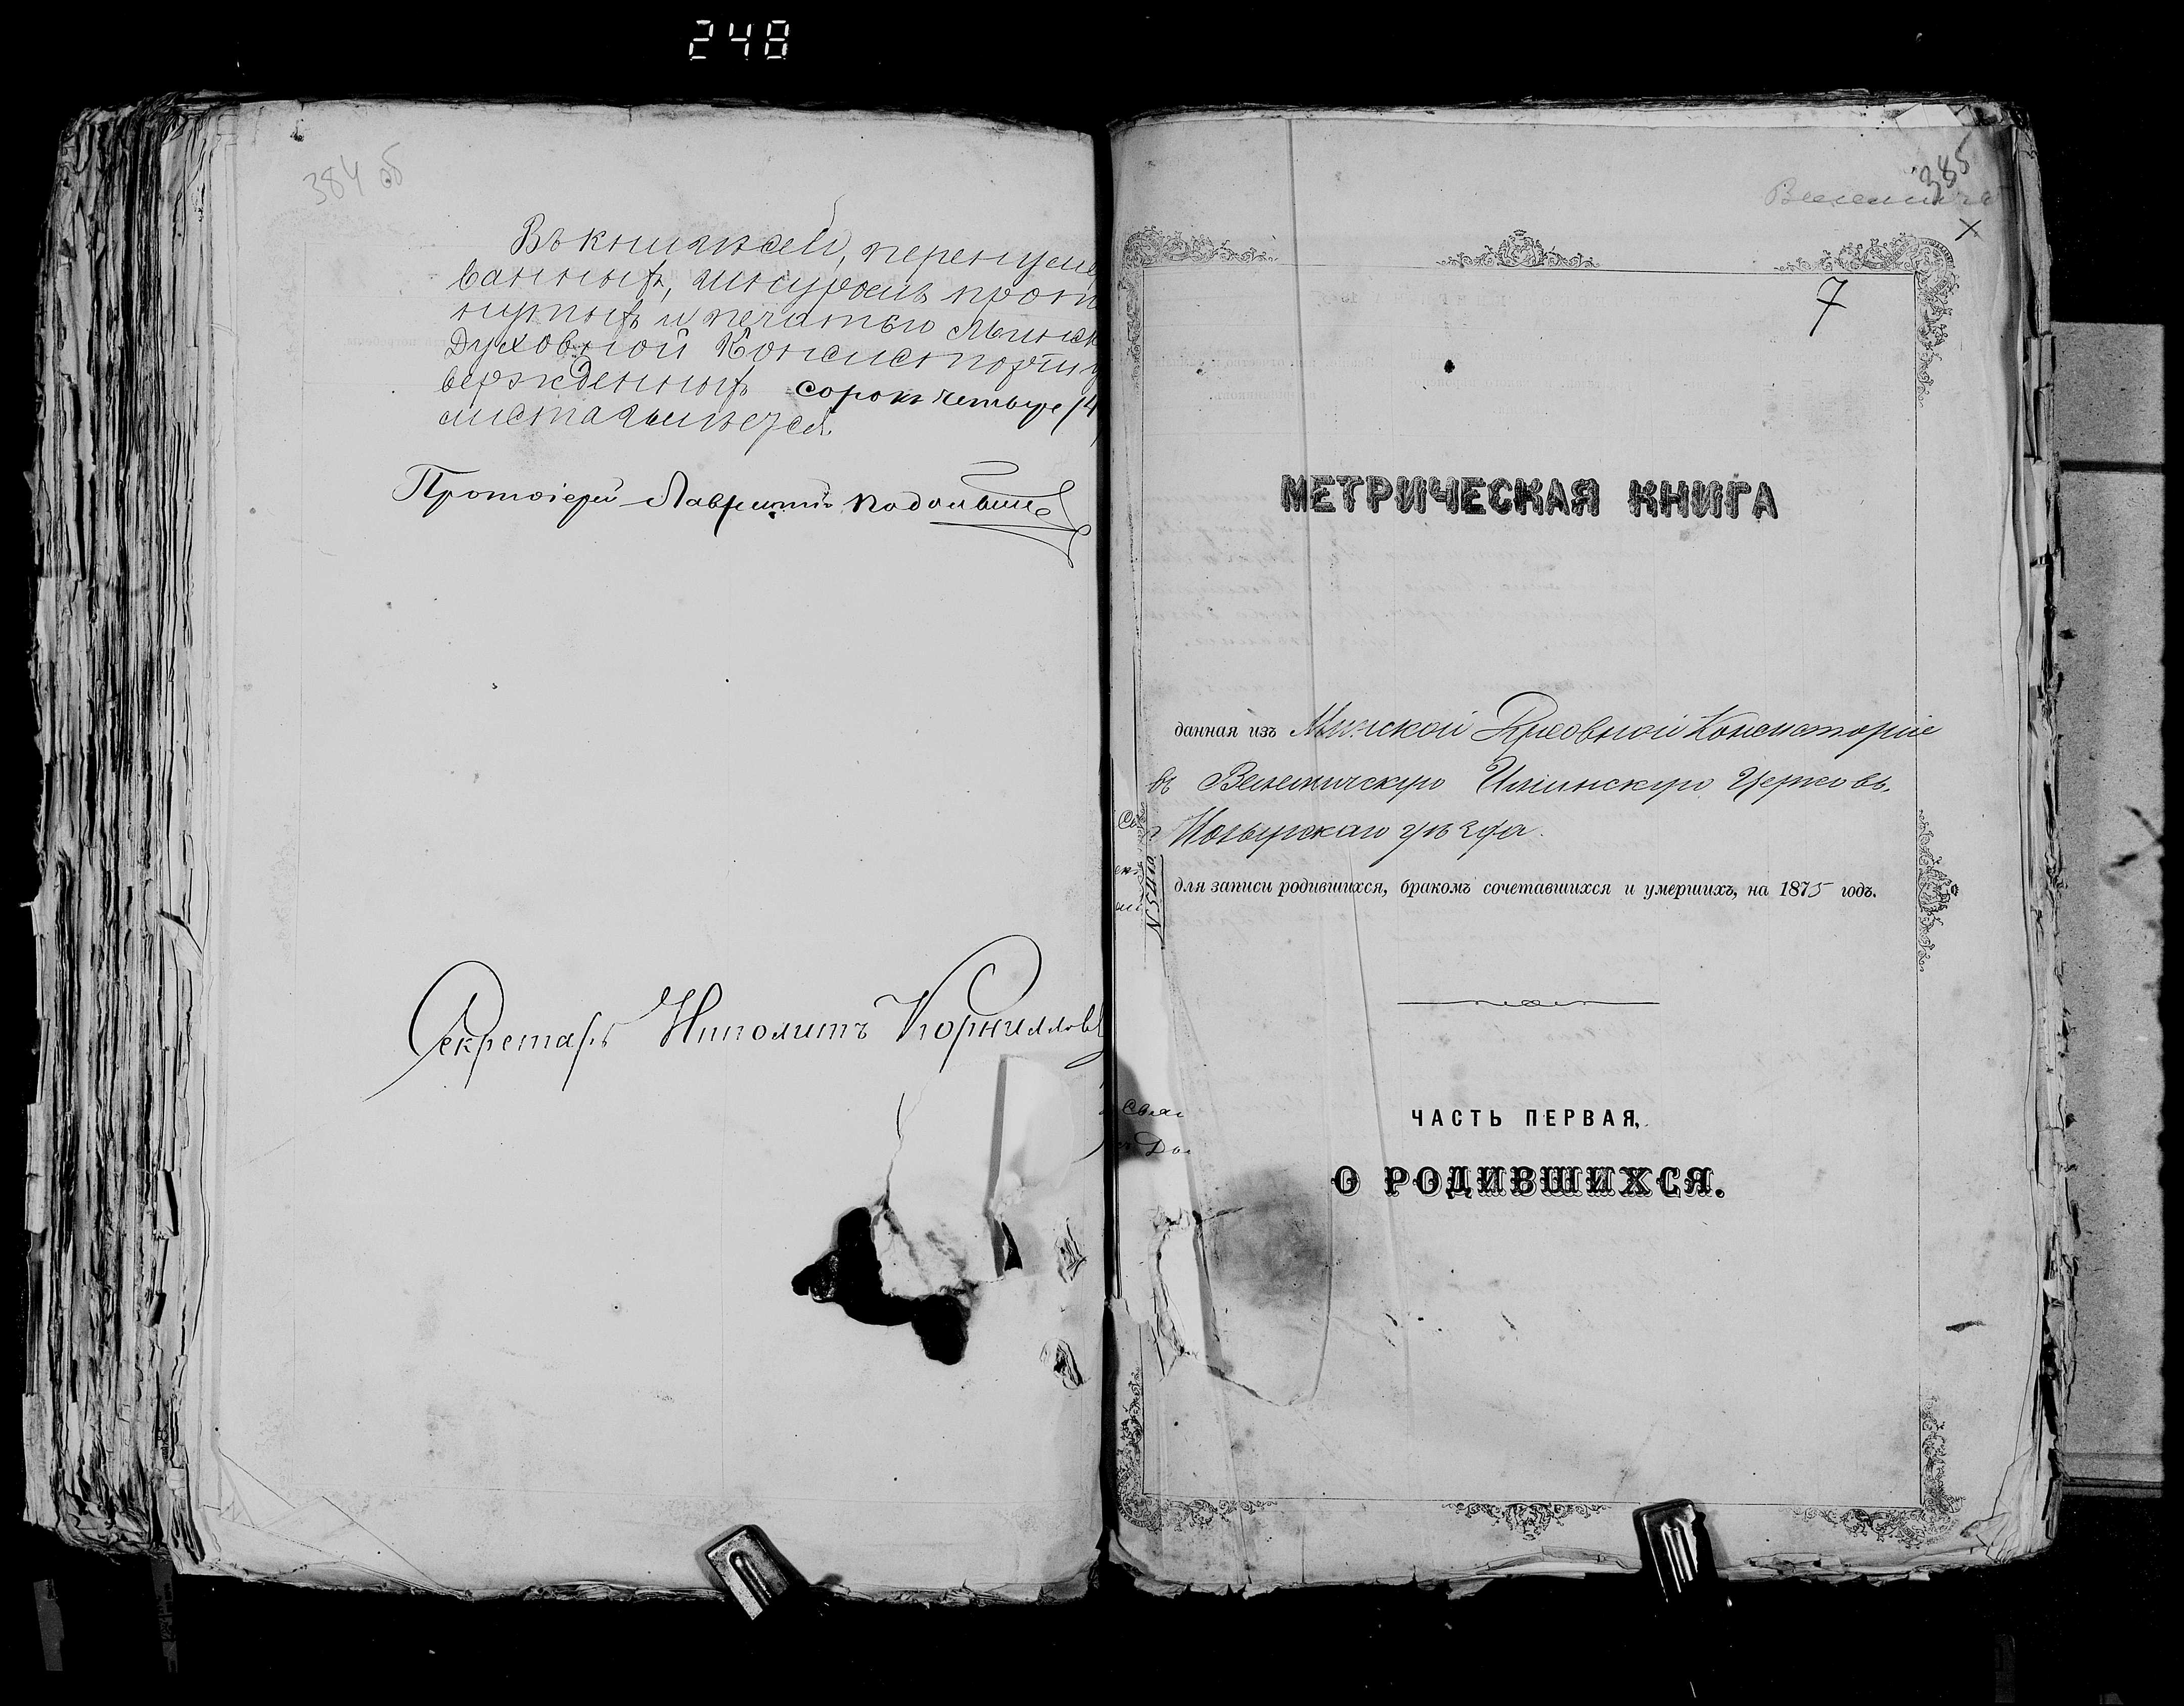 248
384 об
Въ книгѣ сей, перенуме
ванный, шнуромъ прон
нутый и печатью Минск
Духовной Консисторіи у
вержденный сорокъ четыре /4
листа имѣется.
Протоіерей Лаврентій Подольскі
Секретарь Ипполитъ Корниллов
385
7
МЕТРИЧЕСКАЯ КНИГА
данная изъ Минской Духовной Консисторіи
въ Велемическую Ильинскую Церковь,
Мозырскаго уѣзда.
для записи родившихся, бракомъ сочетавшихся и умершихъ, на 1875 годъ.
ЧАСТЬ ПЕРВАЯ,
О РОДИВШИХСЯ.